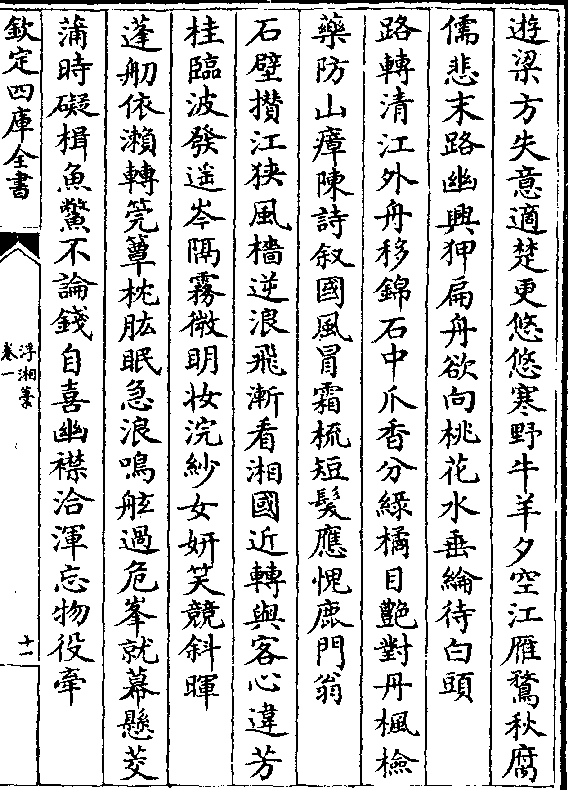 遊梁方失意適楚更悠悠寒野牛羊夕空江雁鶩秋腐
儒悲末路幽興狎扁舟欲向桃花水垂綸待白頭
路轉清江外舟移錦石中爪香分綠橘目艶對丹楓檢
藥防山瘴陳詩叙國風冒霜梳短髪應愧鹿門翁
石壁攅江狭風檣逆浪飛漸看湘國近轉與客心違芳
桂臨波發遥岑隔霧微明妝浣紗女妍笑競斜暉
蓬舠依瀨轉筦蕈枕肱眠急浪鳴舷過危峯就幕懸芰
蒲時礙楫魚鱉不論錢自喜幽襟洽渾忘物役牽
欽定四庫全書
浮湘藁
卷一
十一